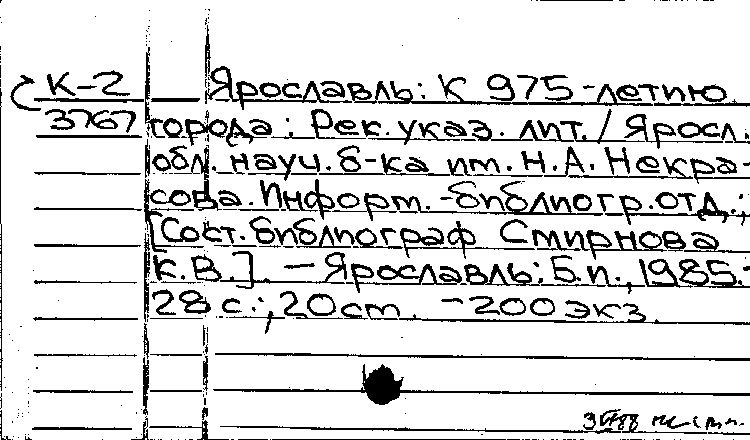 К-2 Ярославль: К 975-летию
3767 города: Рек. указ. лит. / Яросл.
обл. науч. б-ка им. Н.А. Некра-
сова. Информ.-библиогр. отд.;
[Сост. библиограф Смирнова
К.В.]. — Ярославль: Б.и., 1985.
28 с.; 20 см. — 200 экз.